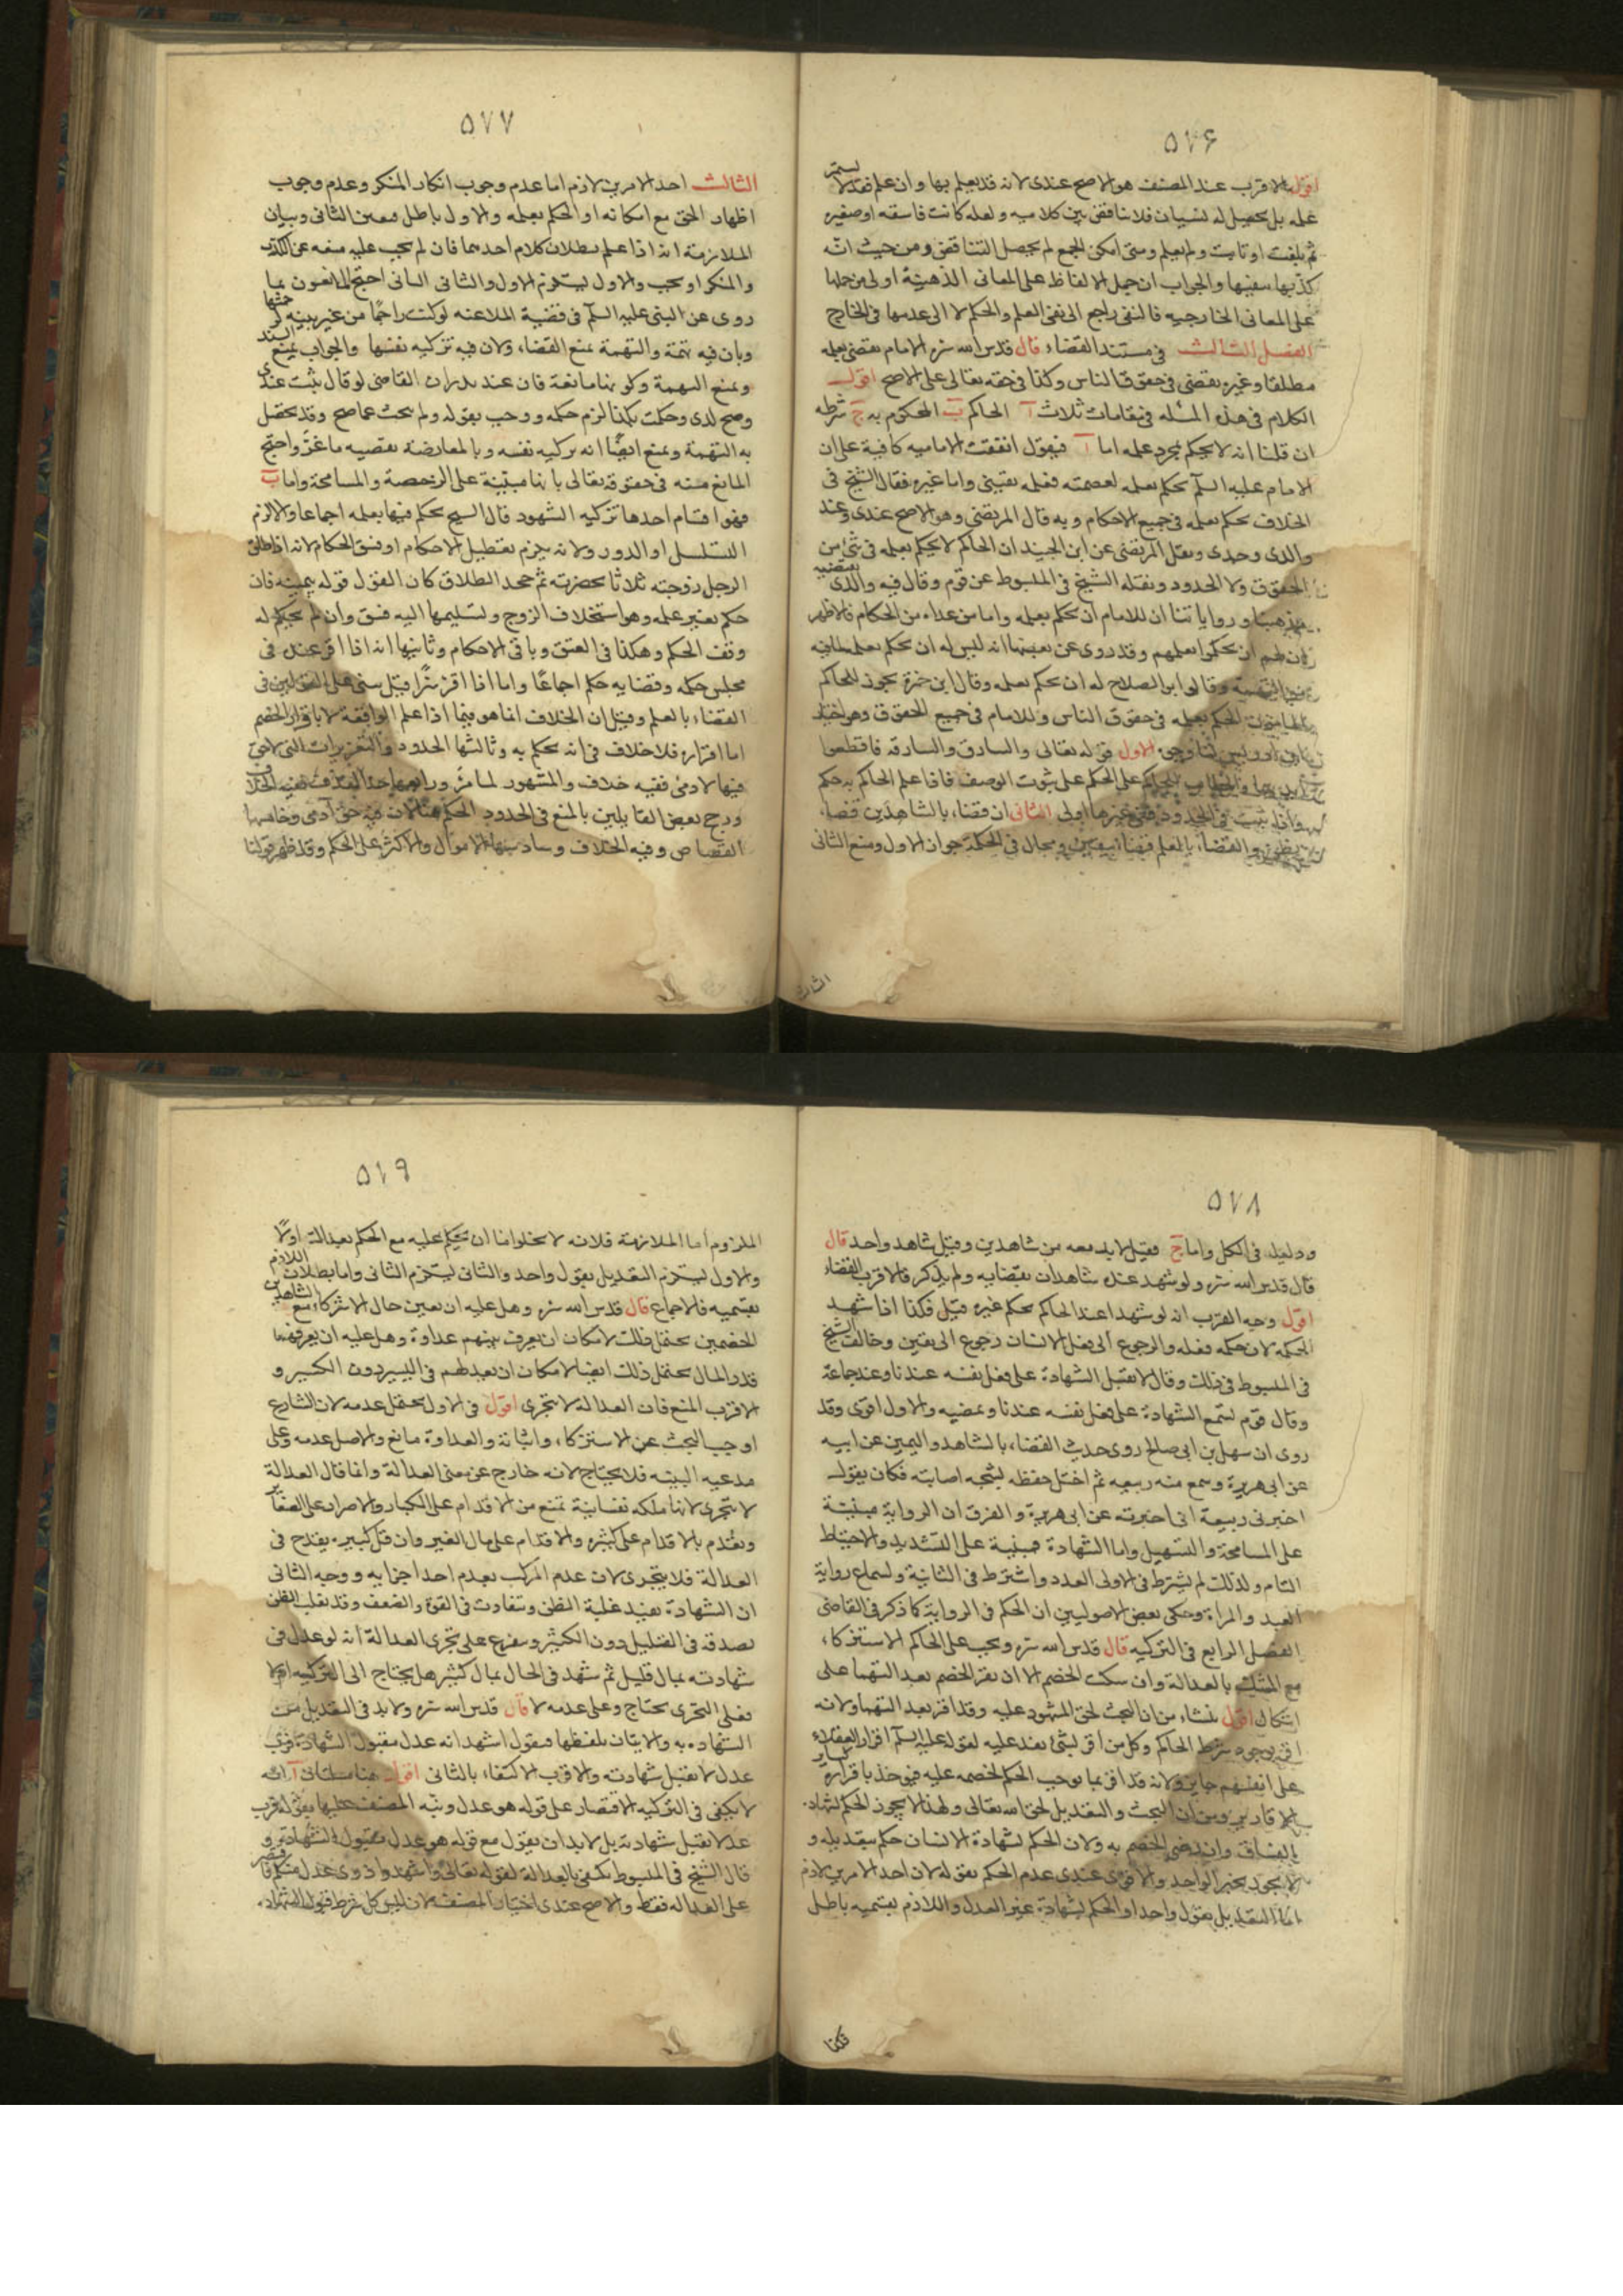 ٥٧۶
اقول الاقرب عند المصنف هو الاصح عندى لانه قد يعلم بها وان علم فقد لا يستمر
علمه بل يحصل له نسيان فلا تناقض بين كلاميه ولعله كانت فاسقه او صغيره
ثم بلغت او تابت ولم يعلم ومتى امكن الجمع لم يحصل التناقض ومن حيث انه
كذبها بنفيها والجواب ان حمل الالفاظ على المعانى الذهنية اولى من حملها
على المعانى الخارجيه فالنفى راجع الى نفى العلم والحكم لا الى عدمها فى الخارج
الفصل الثالث فى مستند القضاء قال قدس الله سره الامام يقضى بعلمه
مطلقا وغيره يقضى فى حقوق الناس وكذا فى حقه تعالى على الاصح اقول
الكلام فى هذه المسئله فى مقامات ثلاث آ الحاكم ب المحكوم به ج شرطه
ان قلنا انه لا يحكم بمجرد علمه اما آ فنقول اتفقت الاماميه كافية على ان
الامام عليه السلم يحكم بعلمه لعصمته فعلمه يقينى واما غيره فقال الشيخ فى
الخلاف يحكم بعلمه فى جميع الاحكام وبه قال المرتضى وهو الاصح عندى وعند
والدى وجدى ونقل المرتضى عن ابن الجنيد ان الحاكم لا يحكم بعلمه فى شئ من
الحقوق ولا الحدود ونقله الشيخ فى المبسوط عن قوم وقال فيه والذى يقتضيه
مذهبنا ورواياتنا ان للامام ان يحكم بعلمه واما من عداه من الحكام فالاظهر
ان لهم ان يحكموا بعلمهم وقد روى عن بعضها انه ليس له ان يحكم بعلمه لما فيه
من التهمة وقال ابو الصلاح له ان يحكم بعلمه وقال ابن حمزة يجوز للحاكم
المامون الحكم بعلمه فى حقوق الناس وللامام فى جميع الحقوق وهو اختيار
ابن ادريس لنا وجوه الاول قوله تعالى والسارق والسارقه فاقطعوا
ايديهما والخطاب للحكام على الحكم على ثبوت الوصف فاذا علم الحاكم به حكم
واذا ثبت فى الحدود ففى غيرها اولى الثانى ان قضاءه بالشاهدين قضاء
بظن والقضاء بالعلم قضاء بيقين ومحال فى الحكمة جواز الاول ومنع الثانى
الثالث
٥٧٧
الثالث احد الامرين لازم اما عدم وجوب انكار المنكر وعدم وجوب
اظهار الحق مع امكانه او الحكم بعلمه والاول باطل فتعين الثانى وبيان
الملازمة انه اذا علم بطلان كلام احدهما فان لم يجب عليه منعه عن الكذب
والمنكر او يجب والاول يستلزم الاول والثانى الثانى احتج المانعون بما
روى عن النبى عليه السلم فى قضية الملاعنه لو كنت راجما من غير بينه لرجمتها
وبان فيه تهمة والتهمة تمنع القضاء ولان فيه تزكيه نفسها والجواب بمنع السند
وبمنع التهمة وكونها مانعة فان عندنا ان القاضى لو قال ثبت عندى
وصح لدى وحكمت بكذا لزم حكمه ووجب بقوله ولم يبحث عما صح وقد يحصل
به التهمة وبمنع ايضا انه تزكيه نفسه وبالمعارضة بقضيه ماعز واحتج
المانع منه فى حقوقه تعالى بانها مبنية على الرخصة والمسامحة واما ب
فهو اقسام احدها تزكيه الشهود قال الشيخ يحكم فيها بعلمه اجماعا والا لزم
التسلسل او الدور ولانه يلزم تعطيل الاحكام او فسق الحكام لانه اذا طلق
الرجل زوجته ثلاثا بحضرته ثم جحد الطلاق كان القول قوله بيمينه فان
حكم بغير علمه وهو استحلاف الزوج وتسليمها اليه فسق وان لم يحكم له
وقف الحكم وهكذا فى العتق وباقى الاحكام وثانيها انه اذا اقر عنده فى
مجلس حكمه وقضايه حكم اجماعا واما اذا اقر سرا وقيل بنى على القولين فى
القضاء بالعلم وقيل ان الخلاف انما هو فيما اذا علم الواقعة لا باقرار الخصم
اما اقراره فلا خلاف فى انه يحكم به وثالثها الحدود والتعزيرات التى لا حق
فيها لادمى ففيه خلاف والمشهور لما مر ورابعها حد القذف ففيه الخلاف
ورجح بعض القايلين بالمنع فى الحدود الحكم هنا لان فيه حق آدمى وخامسها
القصاص وفيه الخلاف وسادسها الاموال والاكثر على الحكم وقد ظهر قولنا
٥٧٨
ودليله فى الكل واما ج فقيل لابد معه من شاهدين وقيل شاهد واحد قال
قال قدس الله سره ولو شهد عنده شاهدان بقضايه ولم يذكر فالاقرب القضاء
اقول وجه القرب انه لو شهدا عند الحاكم بحكم غيره قبل فكذا اذا شهد
لحكمه لان حكمه فعله والرجوع الى فعل الانسان رجوع الى يقين وخالف الشيخ
فى المبسوط فى ذلك وقال لا تقبل الشهادة على فعل نفسه عندنا وعند جماعة
وقال قوم تسمع الشهادة على فعل نفسه عندنا ويمضيه والاول اقوى وقد
روى ان سهل بن ابى صالح روى حديث القضاء بالشاهد واليمين عن ابيه
عن ابى هريرة وسمع منه ربيعه ثم اختل حفظه لشجه اصابته فكان يقول
اخبرنى ربيعة انى اخبرته عن ابى هريرة والفرق ان الرواية مبنية
على المسامحة والتسهيل واما الشهادة فمبنية على التشديد والاحتياط
التام ولذلك لم يشترط فى الاولى العدد واشترط فى الثانية ولسماع رواية
العبد والمراة وحكى بعض الاصوليين ان الحكم فى الرواية كما ذكر فى القاضى
الفصل الرابع فى التزكيه قال قدس الله سره ويجب على الحاكم الاستزكاء
مع الشك بالعدالة وان سكت الخصم الا ان يقر الخصم بعدالتهما على
اشكال اقول ينشاء من ان البحث لحق المشهود عليه وقد اقر بعدالتهما ولانه
اقر بوجود شرط الحاكم وكل من اقر بشئ نفذ عليه لقوله عليه السلم اقرار العقلاء
على انفسهم جايز ولانه قد اقر بما يوجب الحكم لخصمه عليه فيوخذ باقراره كساير
الاقارير ومن ان البحث والتعديل لحق الله تعالى ولهذا لا يجوز الحكم بشهادة
الفساق وان رضى الخصم به ولان الحكم بشهادة الانسان حكم بتعديله و
لا يجوز بخبر الواحد والاقوى عندى عدم الحكم بقوله لان احد الامرين لازم
اما التعديل بقول واحد او الحكم بشهادة غير العدل واللازم بقسميه باطل
فكذا
٥٧٩
الملزوم اما الملازمة فلانه لا يخلو اما ان يحكم عليه مع الحكم بعدالته او لا
والاول يستلزم التعديل بقول واحد والثانى يستلزم الثانى واما بطلان اللازم
بقسميه فالاجماع قال قدس الله سره وهل عليه ان يعين حال الاستزكاء مع الشاهدين
الخصمين يحتمل ذلك لامكان ان يعرف بينهم عداوة وهل عليه ان يعرفهما
قدر المال يحتمل ذلك ايضا لامكان ان يعدلهم فى اليسير دون الكثير و
الاقرب المنع فان العدالة لا تتجزى اقول فى الاول يحتمل عدمه لان الشارع
اوجب البحث عن الاستزكاء واثباته والعداوة مانع والاصل عدمه وعلى
مدعيه البينه فلا يحتاج لانه خارج عن معنى العدالة وانما قال العدالة
لا تتجزى لانها ملكه نفسانية تمنع من الاقدام على الكباير والاصرار على الصغاير
وتعدم بالاقدام على كثيره والاقدام على مال الغير وان قل كبيره يقدح فى
العدالة فلا يتجزى لان عدم المركب بعدم احد اجزايه ووجه الثانى
ان الشهادة تفيد غلبة الظن وتتفاوت فى القوة والضعف وقد يغلب الظن
بصدقه فى القليل دون الكثير وتفرع على تجزى العدالة انه لو عدل فى
شهادته بمال قليل ثم شهد فى الحال بمال كثير هل يحتاج الى التزكيه ام لا
فعلى التجزى يحتاج وعلى عدمه لا قال قدس الله سره ولابد فى التعديل من
الشهاده به والاتيان بلفظها فيقول اشهد انه عدل مقبول الشهادة فرب
عدل لا تقبل شهادته والاقرب الاكتفاء بالثانى اقول هنا مسئلتان آ انه
لا يكفى فى التزكيه الاقتصار على قوله هو عدل ونبه المصنف عليها بقوله فرب
عدل لا تقبل شهادته بل لابد ان يقول مع قوله هو عدل مقبول الشهادة و
قال الشيخ فى المبسوط يكفى بالعدالة لقوله تعالى واشهدوا ذوى عدل منكم فاقتصر
على العدالة فقط والاصح عندى اختيار المصنف لان ليس كل شرط قبول الشهادة